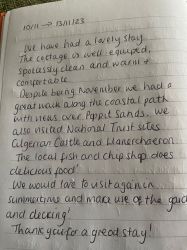 10/11 → 13/11/23
We have had a lovely stay.
The cottage is well-equiped,
spotlessly clean and warm +
comfortable.
Despite being November we had a
great walk along the coastal path
with views over Poppit Sands. We
also visited National Trust sites
Cilgerran Castle and Llanerchaeron.
The local fish and chip shop does
delicious food!
We would love to visit again in
summertime and make use of the
and decking!
Thank you for a great stay!